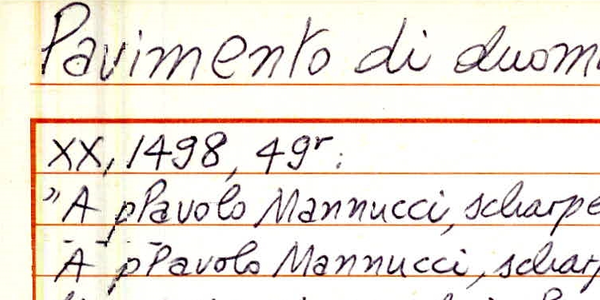 Pavimento di duom
XX, 1498, 49r:
"A pPavolo Mannucci, scharpe
A pPavolo Mannucci, scharp